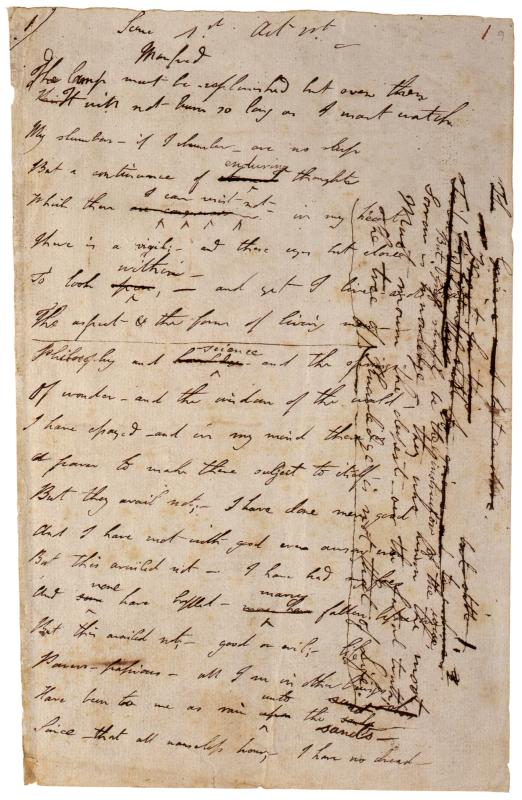 1)
Scene 1st Act 1st
1
9
Manfred
The lamp must be replenished but even then
It will not burn so long as I must watch
My slumbers - if I slumber - are no sleep
But a continuance of enduring thought
Which then I can resist not - in my heart
There is a vigil; - and these eyes but close
To look within; - and yet I live - and bear
The aspect & the form of living men -
Philosophy and science - and the springs
Of wonder - and the wisdom of the world -
I have essayed - and in my mind there is
A power to make these subject to itself
But they avail not; - I have done men good
And I have met with good even among men
But this availed not - I have had my foes
And none have baffled - many fallen before me
But this availed not; - good or evil; - life
Powers - passions - all I see in other beings
Have been to me as rain unto the sands -
Since that all nameless hour; - I have no dread
But Grief should be the Instructor of the wise
Sorrow is knowledge - they who know the most
Must mourn the deepest o'er the fatal truth
The tree of knowledge is not that of Life.